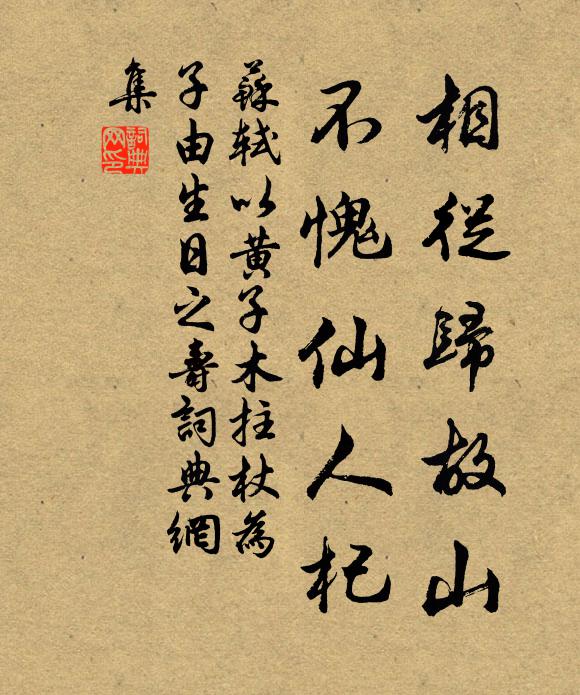 相從歸故山
不愧仙人杞
蘇軾以黃子木拄杖為
子由生日之壽詞典網
集
詞典
网印